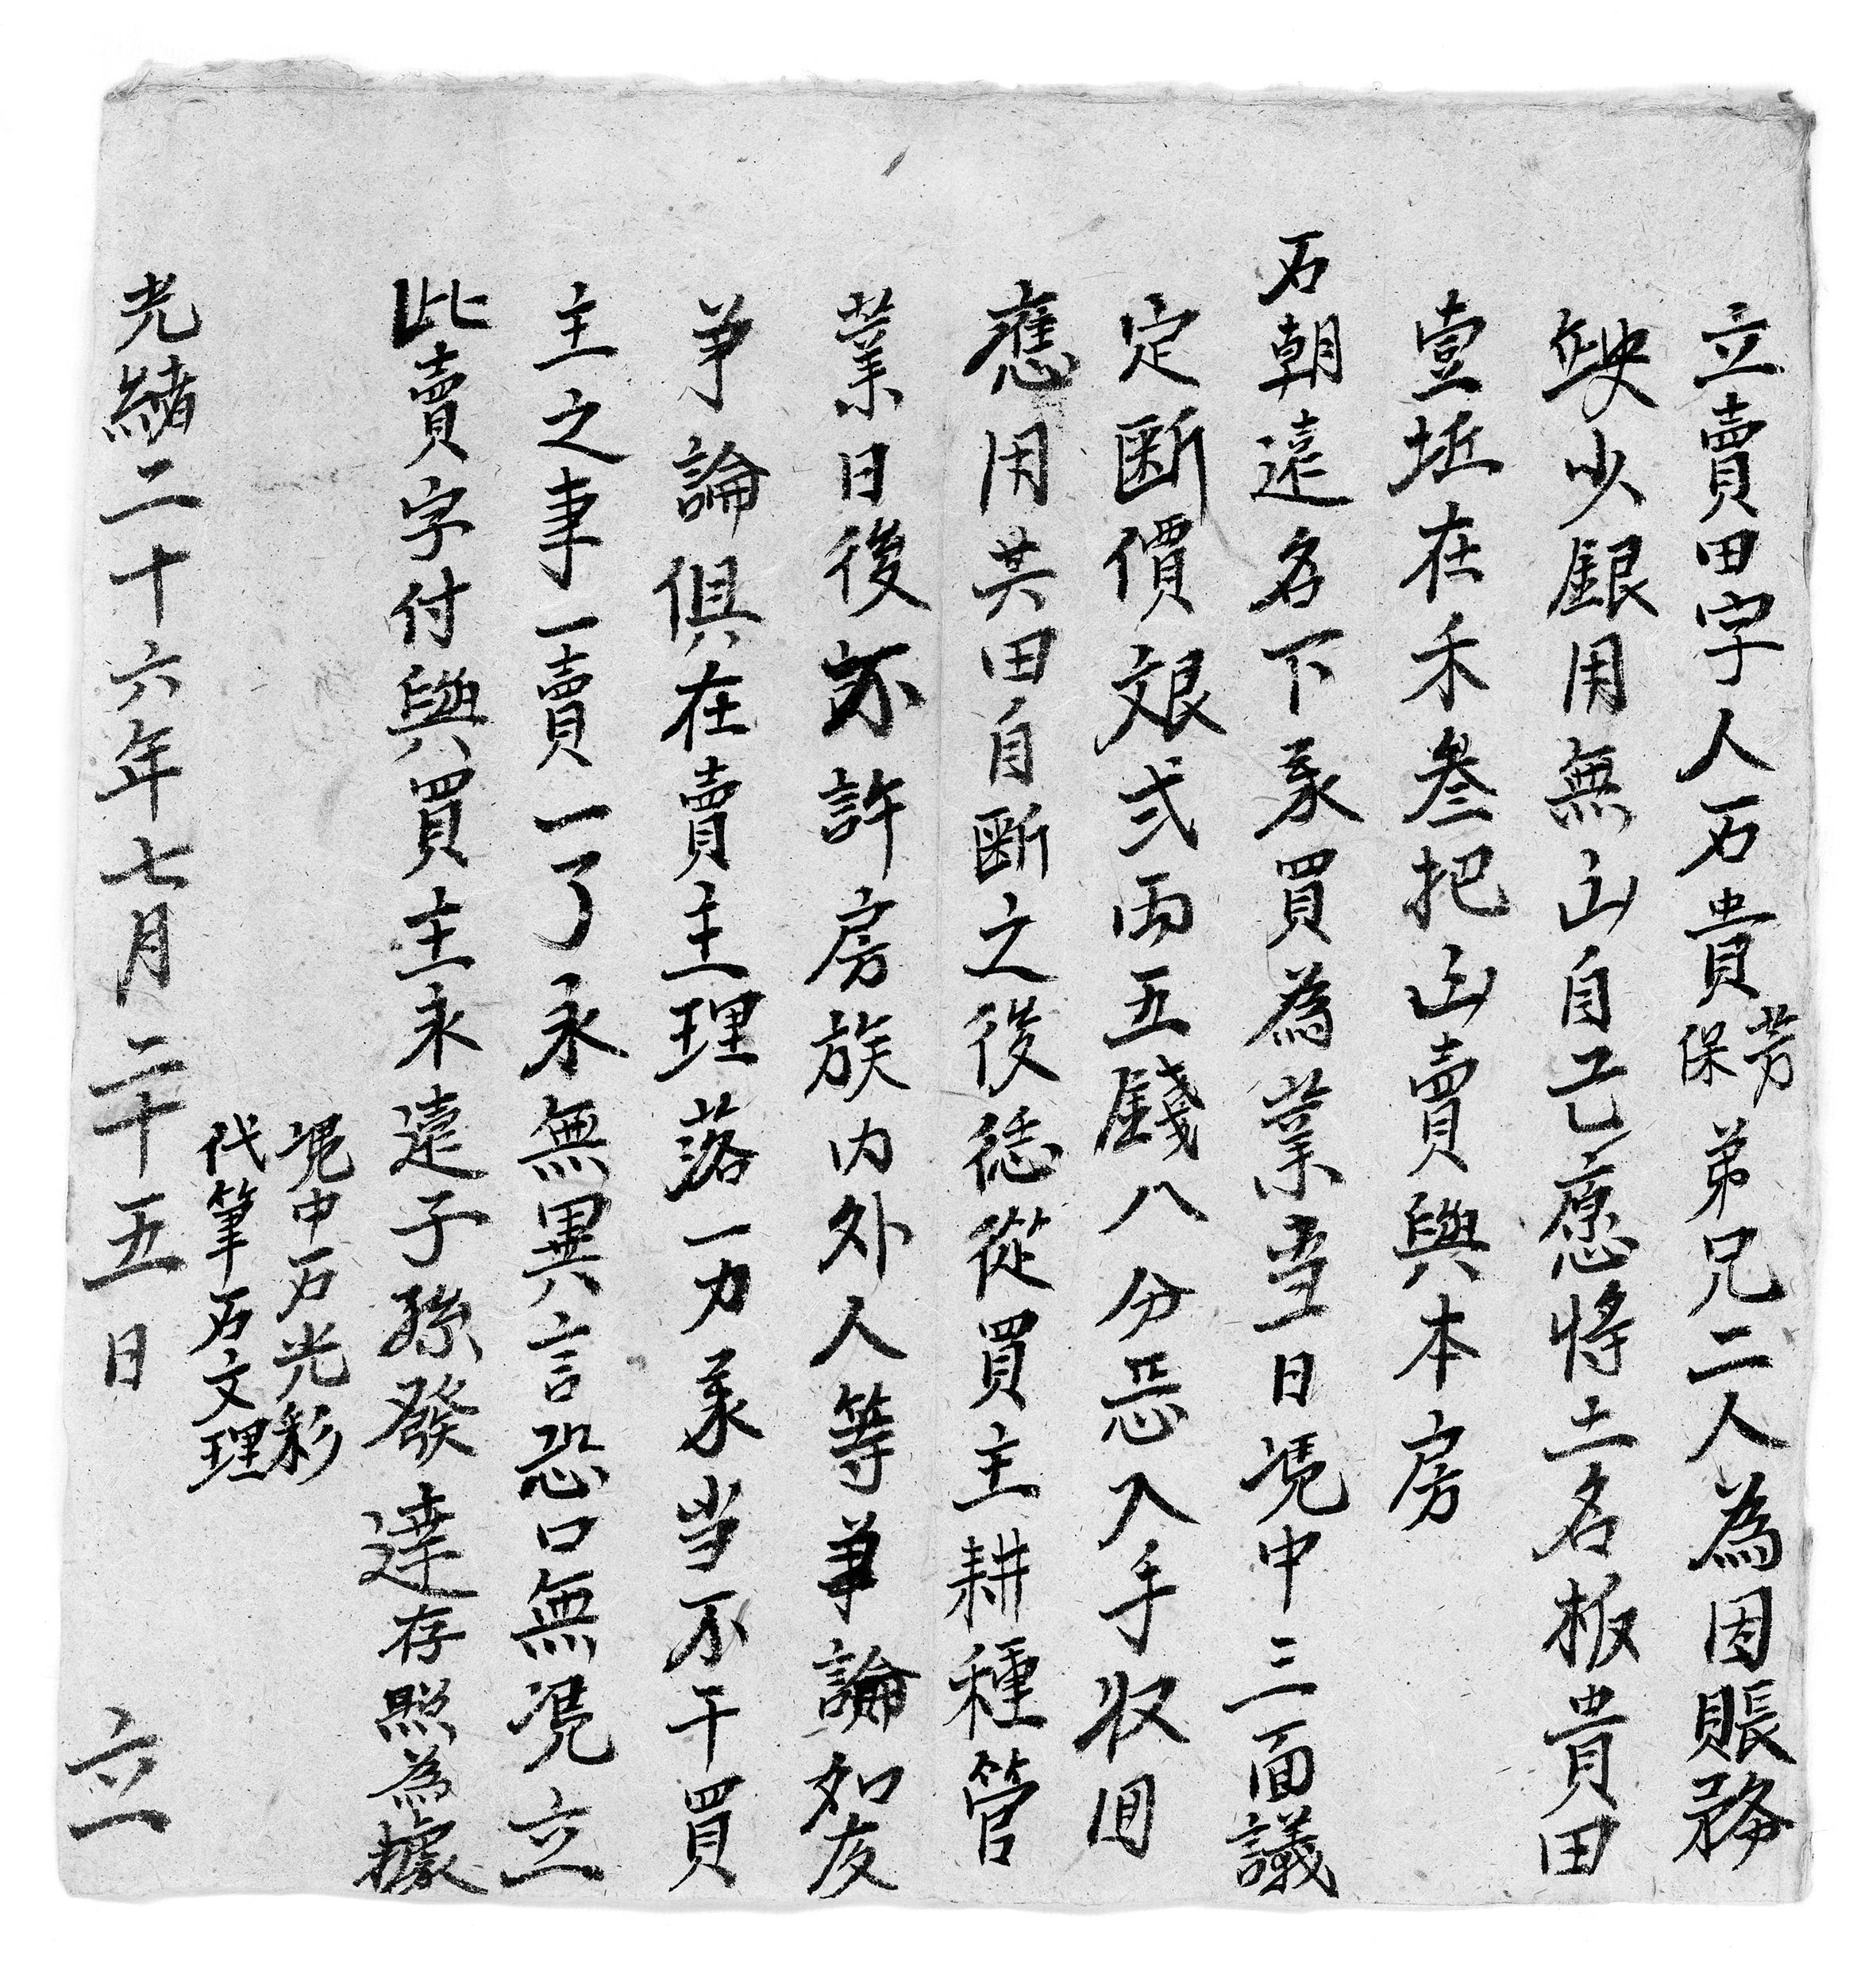 立賣田字人石貴芳保弟兄二人為因賬務
缺少銀用無山自己應將土名板貴田
壹坵在禾叄把山賣與本房
石朝遠名下承買為業当日凴中三面議
定断價艮弍両五錢八分忌入手收囬
應用其田自断之後恁從買主耕種管
業日後不許房族内外人等爭論如友
爭論俱在賣主理落一力承当不干買
主之事一賣一了永無異言恐口無凴立
此賣字付與買主永遠子孫發達存照為據
凴中石光彩
代筆石文理
光緒二十六年七月二十五日 立